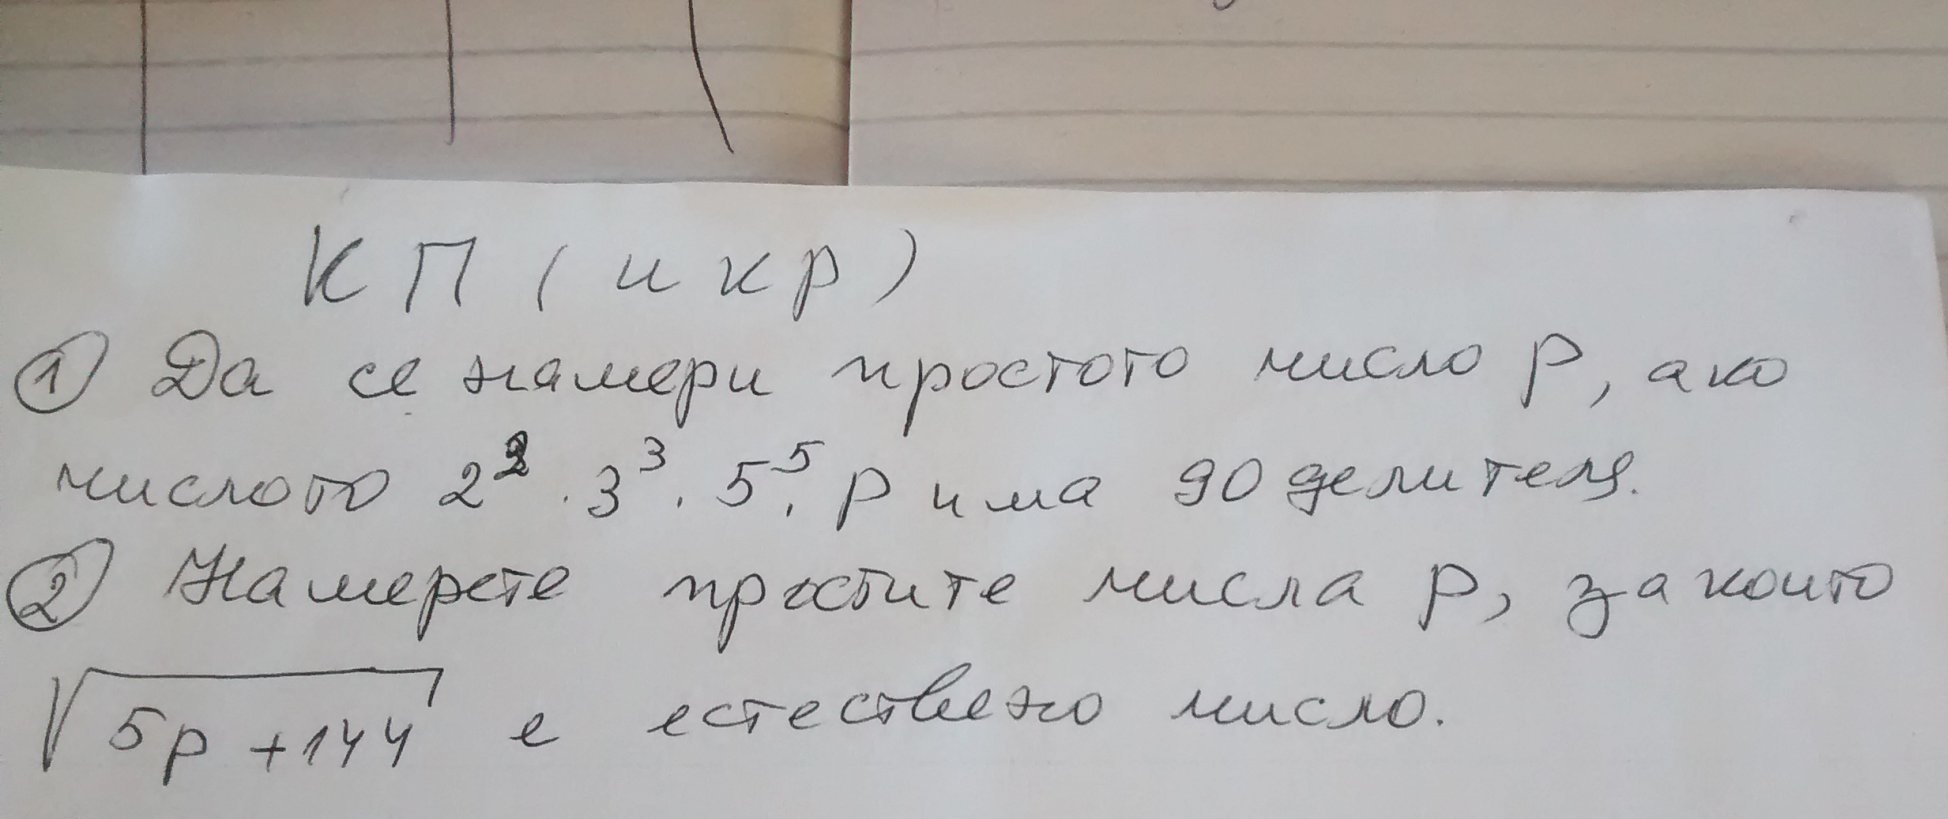 КП (икр)
① Да се намери простото число p, ако
числото 2² · 3³ · 5⁵ · p има 90 делителя.
② Намерете простите числа p, за които
√5p+144 е естествено число.